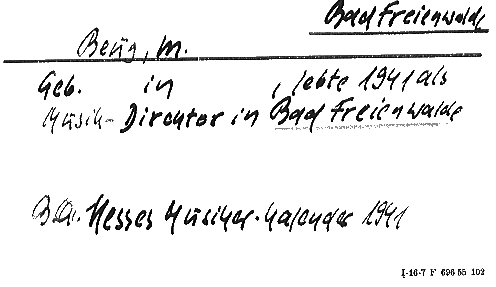 Bad Freienwalde
Berg, M.
Geb. in , lebte 1941 als
Musik-Direktor in Bad Freienwalde
Hesses Musiker-Kalender 1941
I-16-7 F 696 55 102